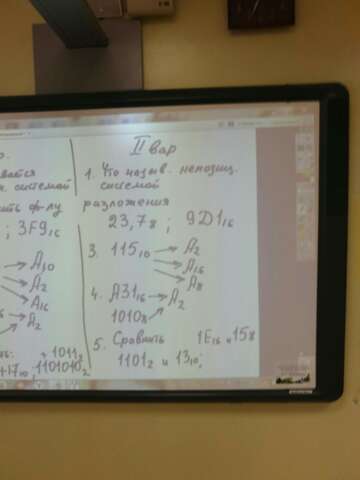 р.
вается
н. системой
ить ф-лу
; 3F9₁₆
A₁₀
A₂
A₁₆
A₂
+ 1011₂
+17₁₀ ; 1101010₂
II вар
1. Что назыв. непозиц.
системой
разложения
23,7₈ ; 9D1₁₆
3. 115₁₀ → A₂
→ A₁₆
→ A₈
4. A31₁₆ → A₂
1010₈ →
5. Сравнить 1E₁₆ и 15₈
1101₂ и 13₁₀;